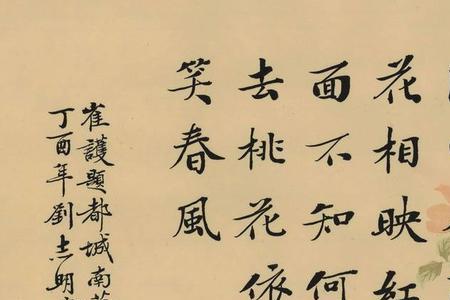 花相映紅
面不知何
去桃花依
笑春風
崔護題都城南莊
丁酉年劉志明